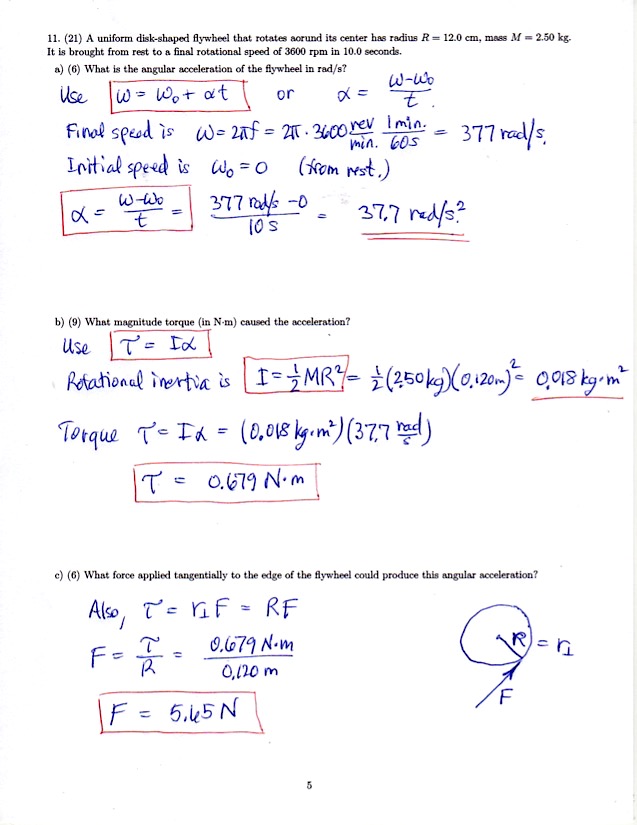 11. (21) A uniform disk-shaped flywheel that rotates aorund its center has radius R = 12.0 cm, mass M = 2.50 kg.
It is brought from rest to a final rotational speed of 3600 rpm in 10.0 seconds.
a) (6) What is the angular acceleration of the flywheel in rad/s?
Use ω = ω₀ + αt or α = (ω-ω₀)/t.
Final speed is ω = 2πf = 2π · 3600 rev/min. 1 min./60s = 377 rad/s.
Initial speed is ω₀ = 0 (from rest.)
α = (ω-ω₀)/t = (377 rad/s - 0)/10 s = 37.7 rad/s².
b) (9) What magnitude torque (in N·m) caused the acceleration?
Use τ = Iα
Rotational inertia is I = ½MR² = ½(2.50 kg)(0.120m)² = 0.018 kg·m²
Torque τ = Iα = (0.018 kg·m²)(37.7 rad/s)
τ = 0.679 N·m
c) (6) What force applied tangentially to the edge of the flywheel could produce this angular acceleration?
Also, τ = r⊥F = RF
F = τ/R = 0.679 N·m/0.120 m
R = r⊥
F
F = 5.65 N
5